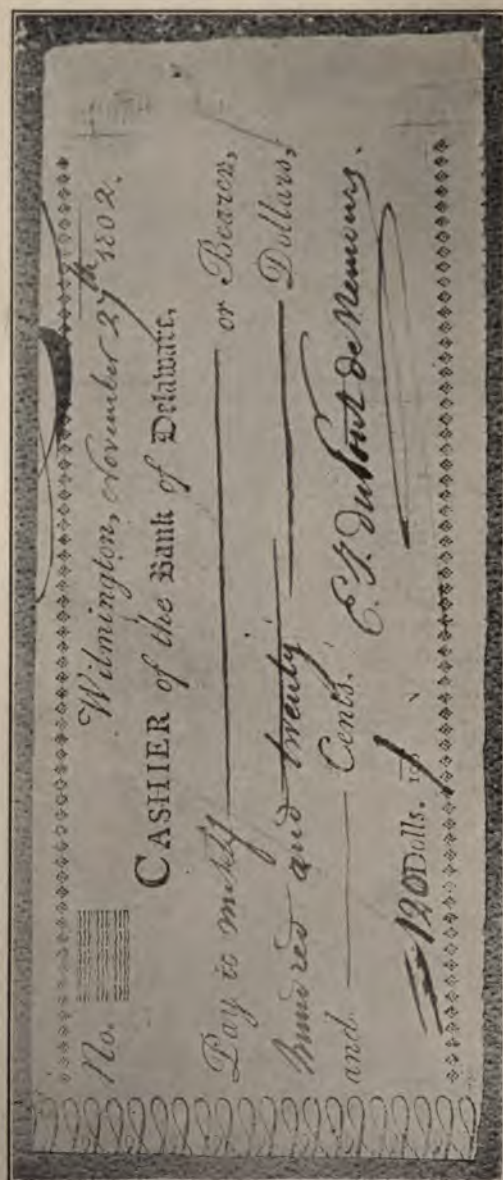 No.
Wilmington, November 27th 1802.
CASHIER of the Bank of Delaware,
Pay to myself or Bearer,
hundred and twenty Dollars,
and Cents. E. I. du Pont de Nemours.
120 Dolls.